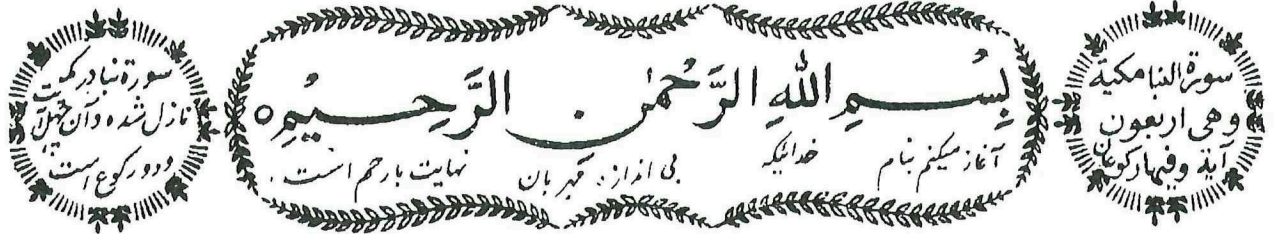 سورة النبا مكية
وهی اربعون
آیة وفیها رکوعان
بِسْمِ اللهِ الرَّحْمٰنِ الرَّحِيْمِ ○
آغاز میکنم بنام خدائیکه بی اندازه مهربان نهایت بارحم است.
سورة نبا در مکه
نازل شده و آن چهل آیة
و دو رکوع است